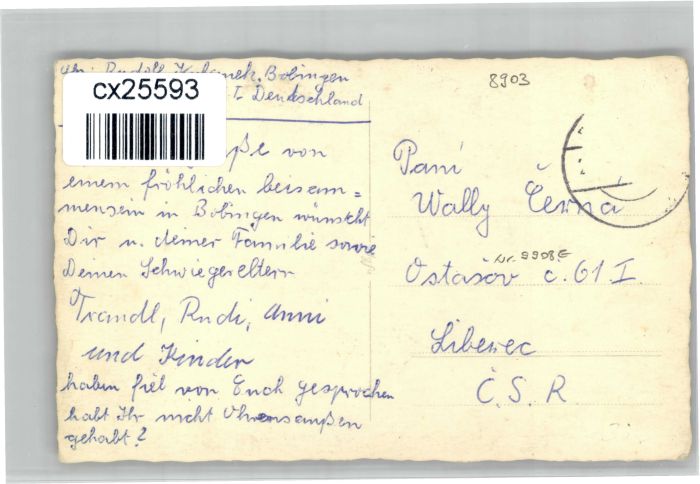 Rudolf Bobingen
I Deutschland
8903
cx25593
von
einem fröhlichen beisam=
mensein in Bobingen wünscht
Dir u. deiner Familie sowie
Deinen Schwiegereltern
Trandl, Rudi, Anni
und Kinder
haben fiel von Euch gesprochen
habt Ihr nicht Ohrensaußen
gehabt?
Paní
Wally Černa
Nr.
Ostašov c. 61 I.
Liberec
Č. S. R